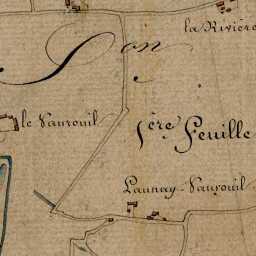 la Rivière
Son
le Vaurouil
1ère Feuille
Launay-Vaurouil